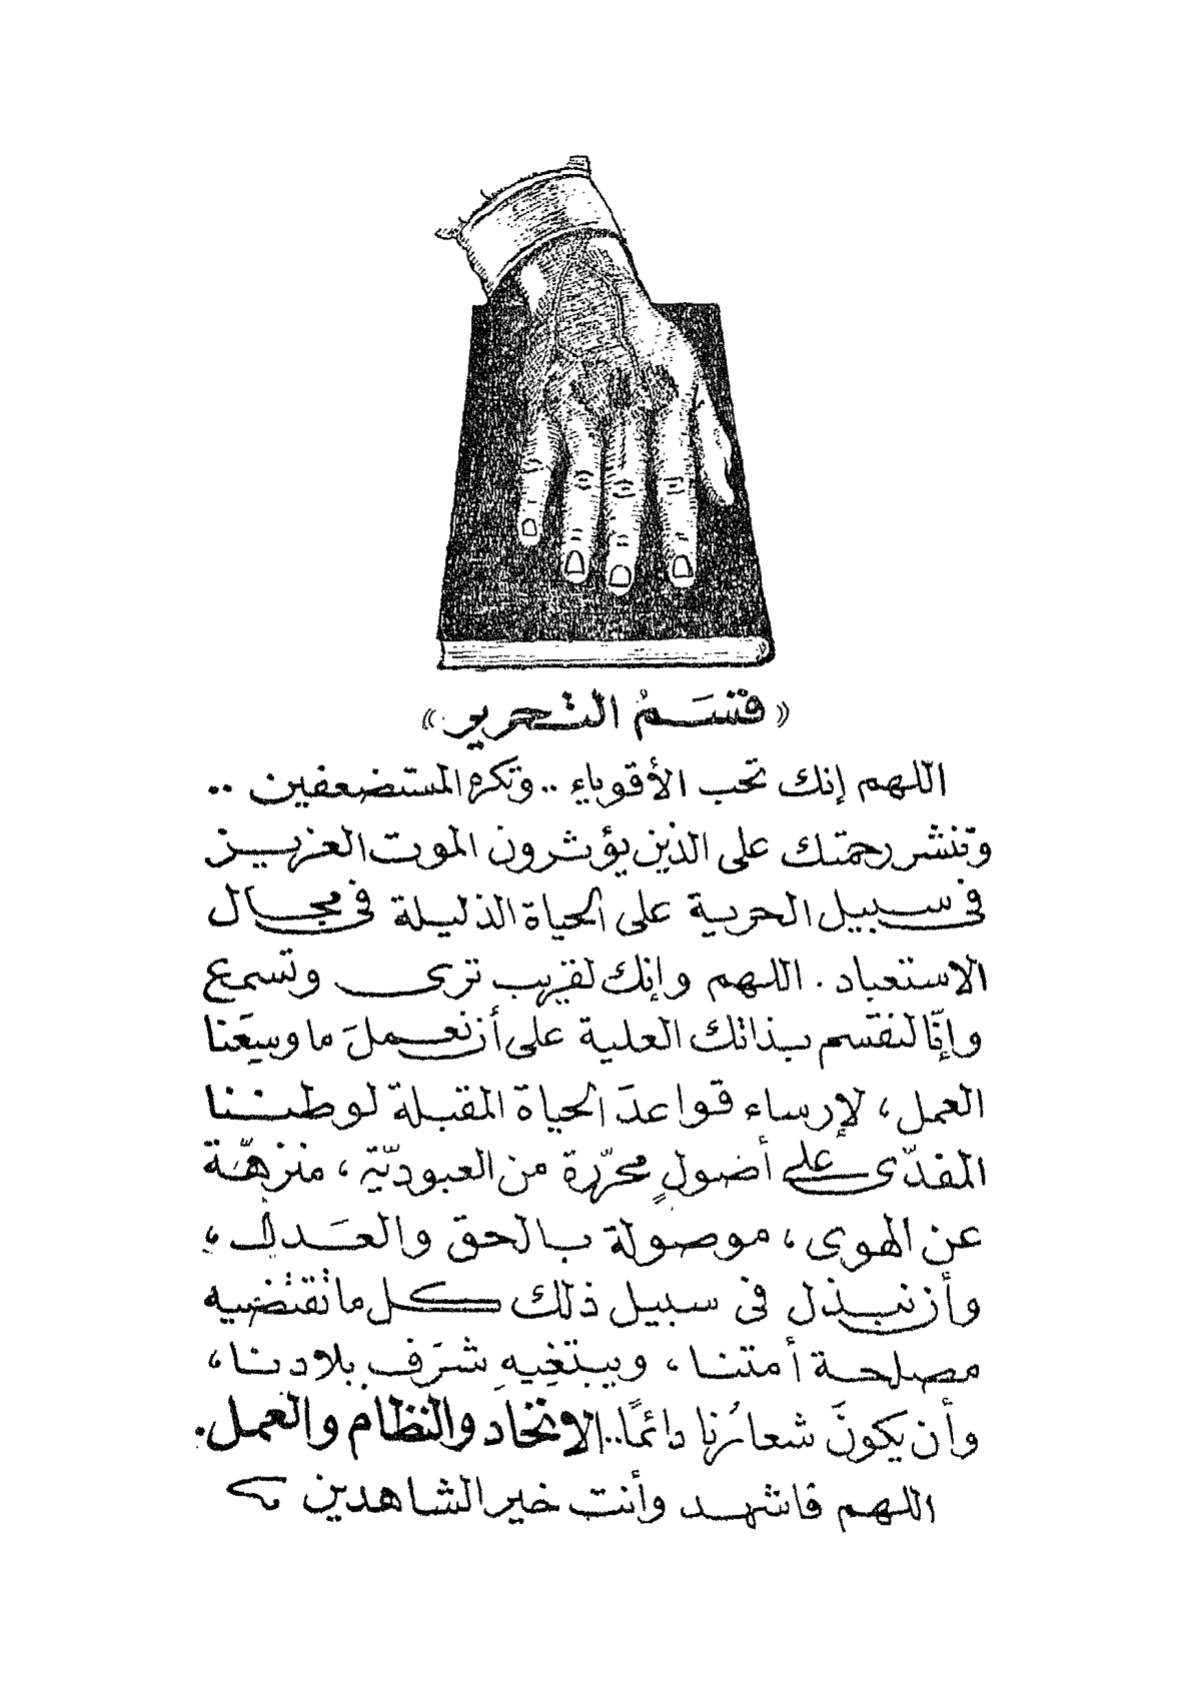 « قَسَمُ التحرير »
اللهم إنك تحب الأقوياء .. وتكره المستضعفين ..
وتنشر رحمتك على الذين يؤثرون الموت العزيز
فى سبيل الحرية على الحياة الذليلة فى مجال
الاستعباد . اللهم وإنك لقريب ترى وتسمع
وإنّا لنقسم بذاتك العلية على أن نعملَ ما وسِعَنا
العمل ، لإرساء قواعدَ الحياة المقبلة لوطننا
المفدّى على أصولٍ محرّرة من العبوديّة ، منزهّة
عن الهوى ، موصولة بالحق والعَدل ،
وأن نبذل فى سبيل ذلك كل ما تقتضيه
مصلحة أمتنا ، ويبتغيهِ شرَف بلادنا ،
وأن يكونَ شعارُنا دائمًا .. الاتحاد والنظام والعمل .
اللهم فاشهد وأنت خير الشاهدين